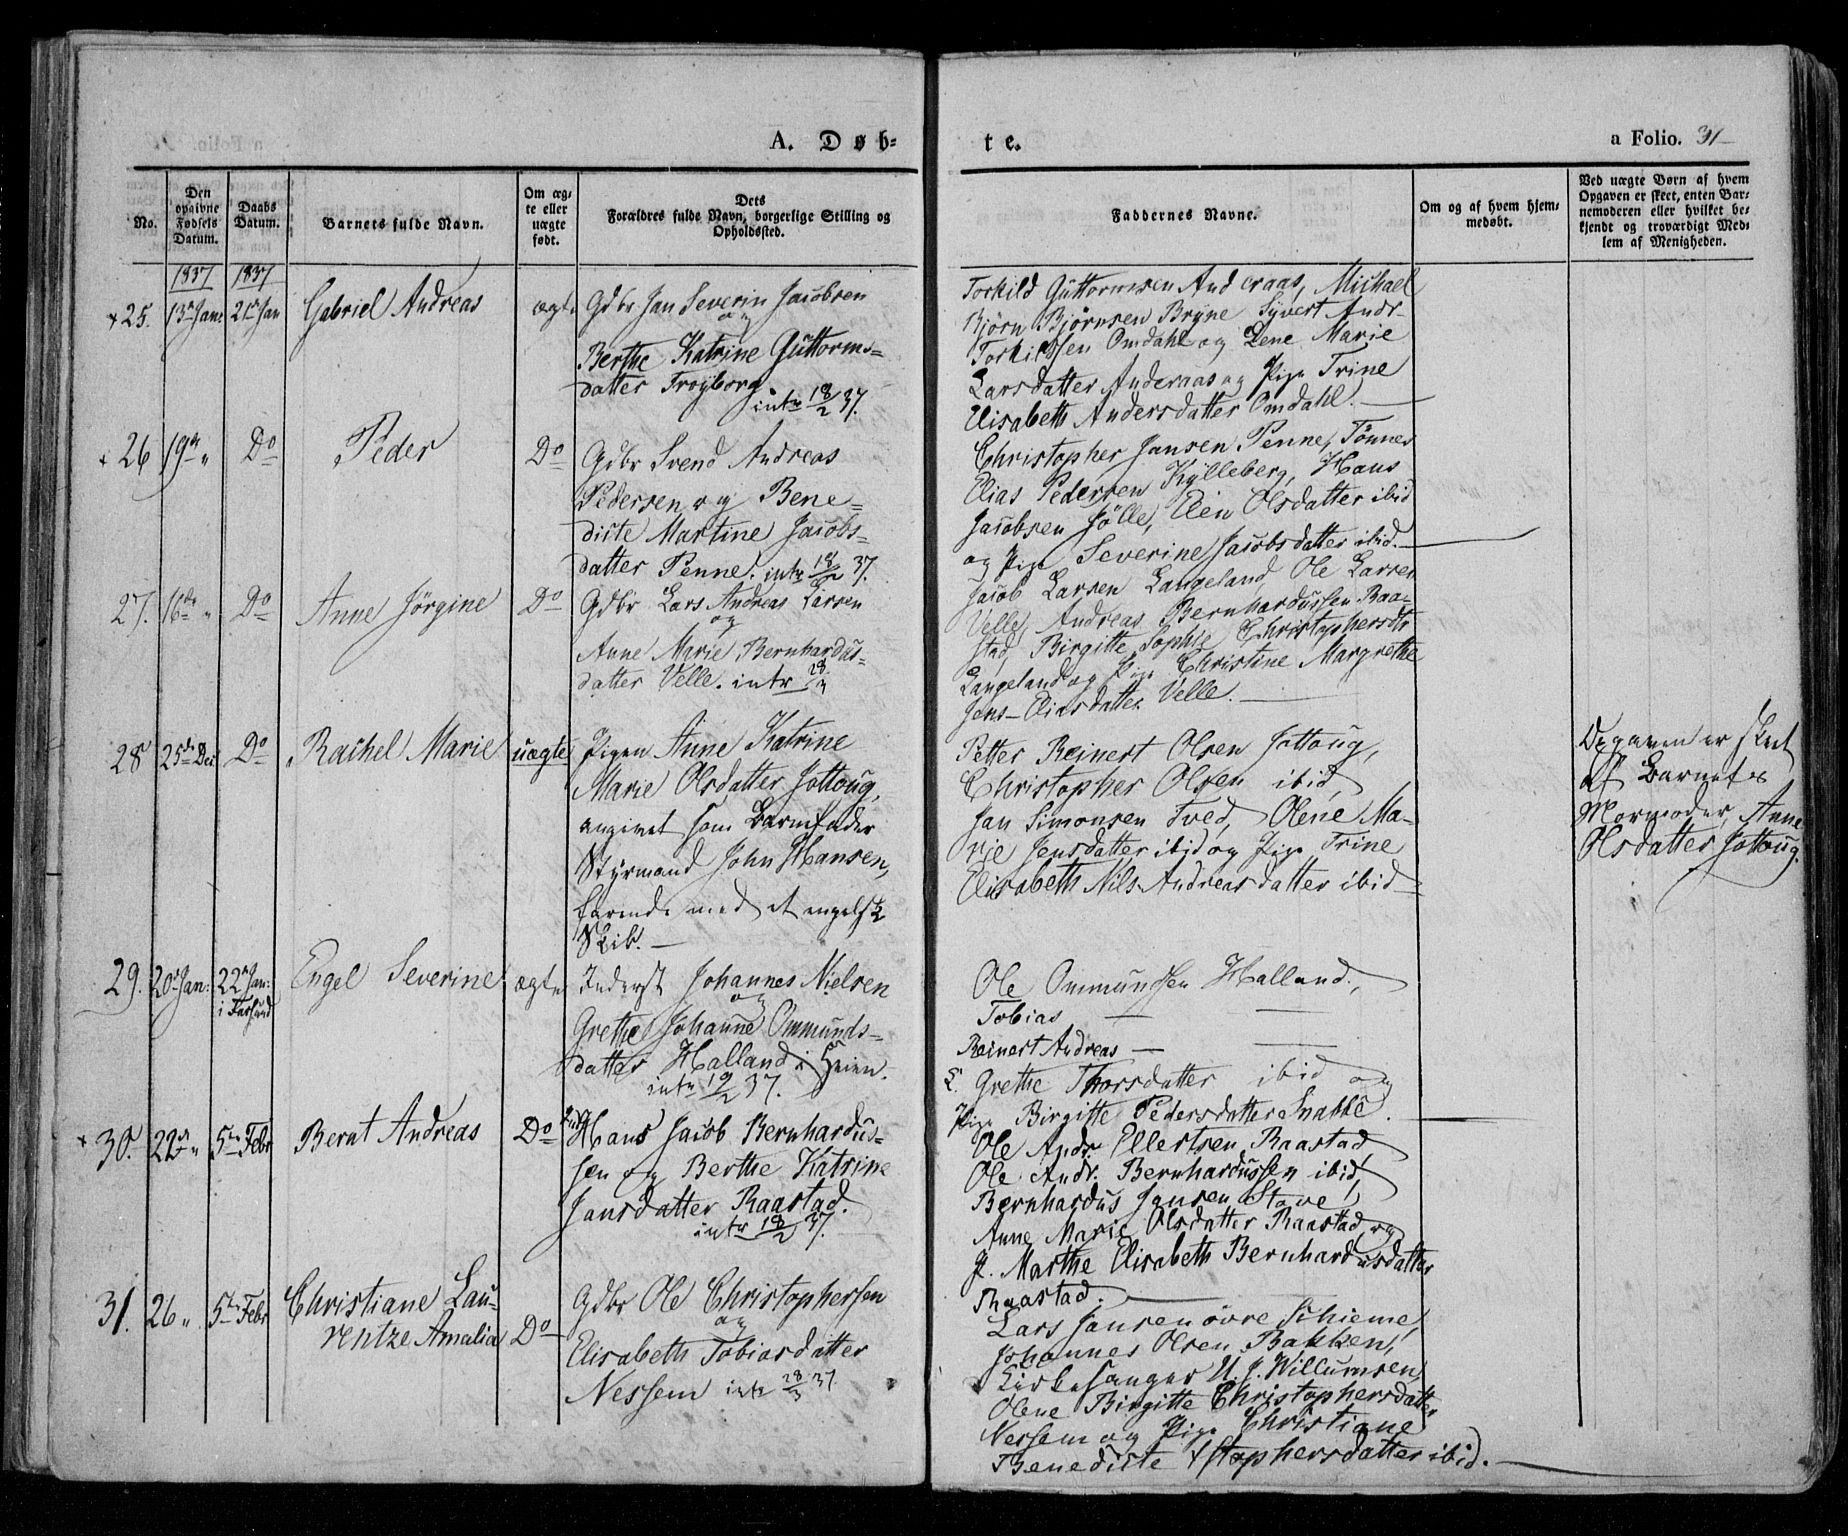 A. Døb-
te.
a Folio. 31
No.
Den opgivne Fødsels Datum.
Daabs Datum.
Barnets fulde Navn.
Om ægte eller uægte født.
Dets Forældres fulde Navn, borgerlige Stilling og Opholdssted.
Faddernes Navne.
Om og af hvem hjemmedøbt.
Ved uægte Børn af hvem Opgaven er skeet, enten Barnemoderen eller hvilket bekjendt og troværdigt Medlem af Menigheden.
1837 1837
+ 25. 13de Jan: 21de Jan Gabriel Andreas ægte Gdbr Jan Severin Jacobsen
og
Berthe Katrine Guttorms=
datter Troyborg
intr 18/2 37.
Torkild Guttormsen Anderaas, Michael
Bjørn Bjørnsen Bryne Syvert Andr
Torkildsen Omdahl og Lene Marie
Larsdatter Anderaas og Pige Trine
Elisabeth Andersdatter Omdahl.
+ 26 19de " Do Peder Do Gdbr Svend Andreas
Pedersen og Bene=
dicte Martine Jacobs=
datter Penne. intr 18/2 37.
Christopher Jansen Penne, Tønnes
Elias Pedersen Kylleberg, Hans
Jacobsen Jølle, Elen Olsdatter ibid
og Pige Severine Jacobsdatter ibid.
27. 16de " Do Anne Jörgine Do Gdbr Lars Andreas Larsen
og
Anne Marie Bernhardus=
datter Velle. intr
Jacob Larsen Langeland, Ole Larsen
Velle, Andreas Bernhardussen Raa=
stad, Birgitte Sophie Christophersdtr
Langeland og Pige Christine Margrethe
Jens-Eliasdatter Velle.
28 25de Dec Do Rachel Marie uægte Pigen Anne Katrine
Marie Olsdatter Jottoug,
angivet som Barnefader
Styrmand John Hansen,
farende med et engelsk
Skib.
Petter Reinert Olsen Jottoug,
Christopher Olsen ibid,
Jan Simonsen Tved, Olene Ma-
rie Jensdatter ibid og Pige Trine
Elisabeth Nils-Andreasdatter ibid
Opgaven er skeet
af Barnets
Mormoder, Anne
Olsdatter Jottoug.
29. 20de Jan: 22de Jan: i Farsund Engel Severine ægte Inderst Johannes Nielsen
og
Grethe Johanne Ommunds=
datter Halland i Heien.
intr 19/2 37.
Ole Ommundsen Halland,
Tobias — —
Reinert Andreas — —
E. Grethe Thorsdatter ibid og
Pige Birgitte Pedersdatter
+ 30. 22de " 5te Febr Bernt Andreas Do Hans Jacob Bernhardus=
sen og Berthe Katrine
Jansdatter Raastad.
intr 18/2 37.
Ole Andr. Ellertsen Raastad,
Ole Andr. Bernhardussen ibid,
Bernhardus Jansen Stave,
Anne Marie Olsdatter Raastad og
P. Marthe Elisabeth Bernhardusdatter
Raastad.
31. 26 " 5te Febr Christiane Lau-
rentze Amalia Do Gdbr Ole Christophersen
og
Elisabeth Tobiasdatter
Nessem intr 28/3 37.
Lars Jansen øvre Schieme,
Johannes Olsen Bakken,
Kirkesanger U. J. Willumsen,
Olene Birgitte Christophersdatter
Nessem og Pige Christiane
Benedicte Xstophersdatter ibid.